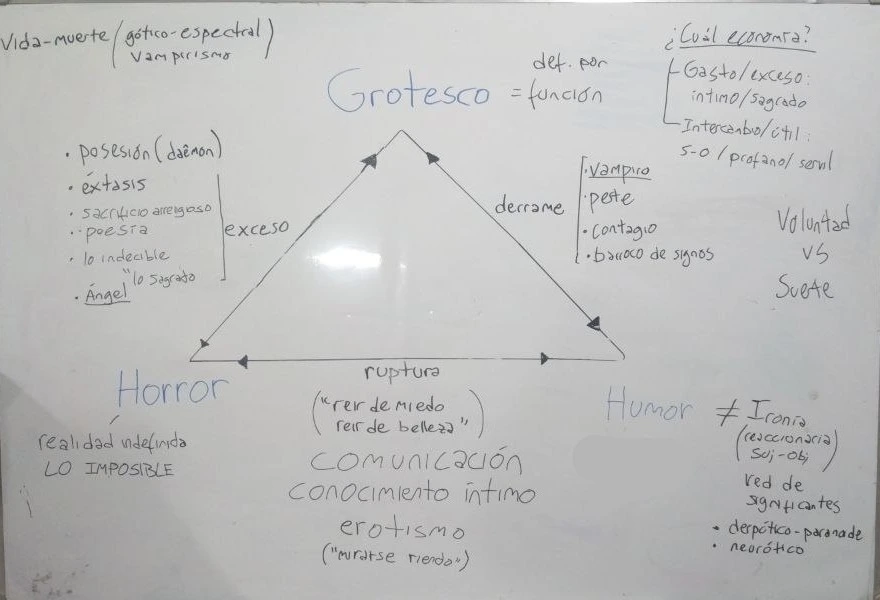 Vida-muerte (gótico-espectral
vampirismo)
Grotesco = def. por
función
¿Cuál economía?
Gasto/exceso:
íntimo/sagrado
Intercambio/útil:
S-O / profano/ servil
• posesión (daêmon)
• éxtasis
• sacrificio
• poesía
• lo indecible
"lo sagrado
• Ángel
exceso
derrame
• vampiro
• peste
• contagio
• barroco de signos
Voluntad
vs
Suerte
Horror
realidad indefinida
LO IMPOSIBLE
ruptura
("reír de miedo
reír de belleza")
comunicación
conocimiento íntimo
erotismo
("mirarse riendo")
Humor ≠ Ironía
(reaccionaria
Suj-Obj)
red de
significantes
• neurótico